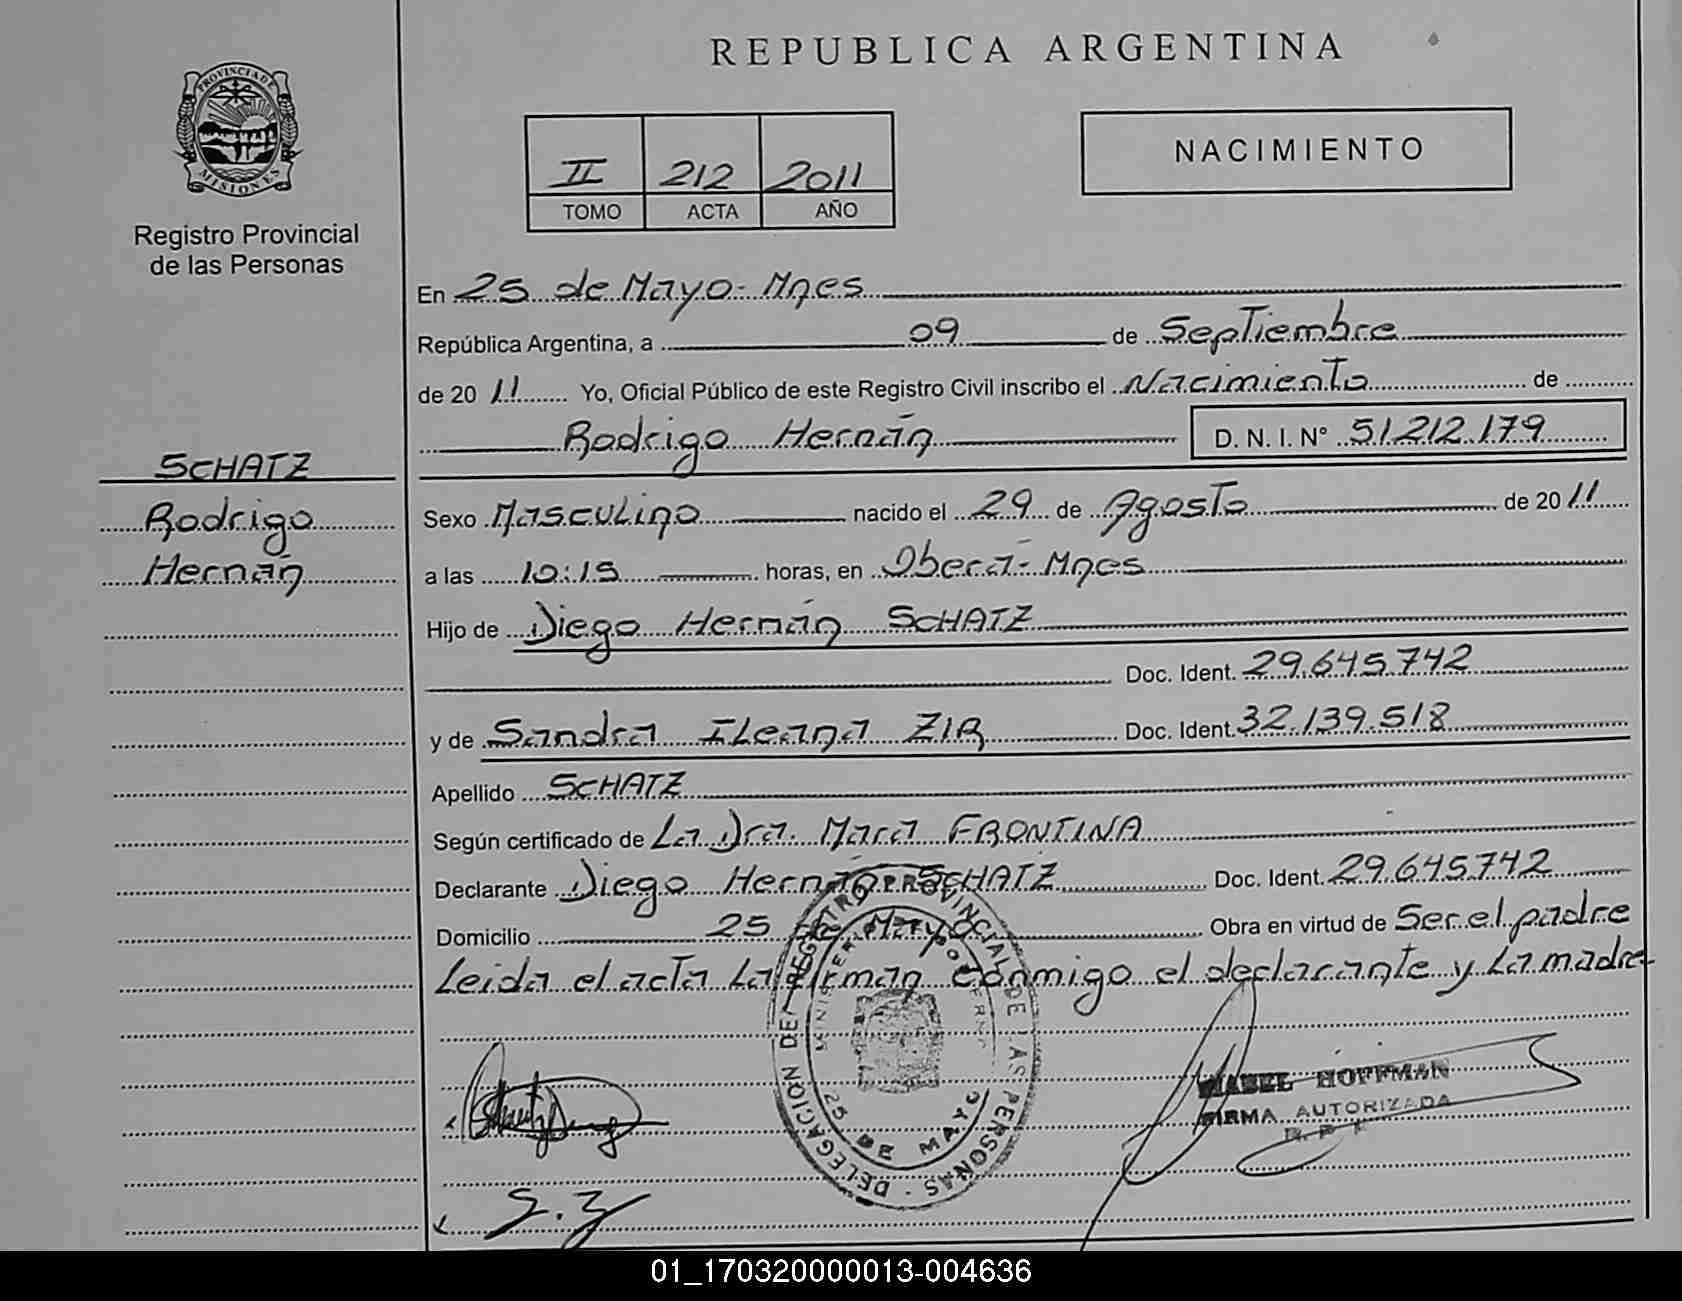 REPUBLICA ARGENTINA
PROVINCIA DE MISIONES
Registro Provincial
de las Personas
II 212 2011
TOMO ACTA AÑO
NACIMIENTO
En 25 de Mayo - Mnes
República Argentina, a 09 de Septiembre
de 2011 Yo, Oficial Público de este Registro Civil inscribo el Nacimiento de
Rodrigo Hernán D. N. I. N° 51.212.179
SCHATZ
Rodrigo
Hernán
Sexo Masculino nacido el 29 de Agosto de 2011
a las 10:15 horas, en Oberá - Mnes
Hijo de Diego Hernán SCHATZ
Doc. Ident. 29.645.742
y de Sandra Ileana ZIR Doc. Ident. 32.139.518
Apellido SCHATZ
Según certificado de La Dra. Mara FRONTINA
Declarante Diego Hernán SCHATZ Doc. Ident. 29.645.742
Domicilio 25 de Mayo Obra en virtud de Ser el padre
Leida el acta La firman conmigo el declarante y La madre
DELEGACION DE REGISTRO PROVINCIAL DE LAS PERSONAS
MINISTERIO DE GOBIERNO
25 DE MAYO
HOFFMAN
FIRMA AUTORIZADA
S. Z
01_170320000013-004636